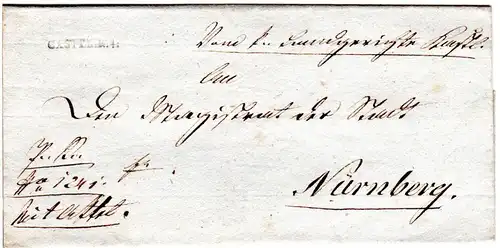 CASTELL.R.4.
Vom k. Landgerichte Kastl.
An
Den Magistrat der Stadt
Nürnberg.
No 1241.